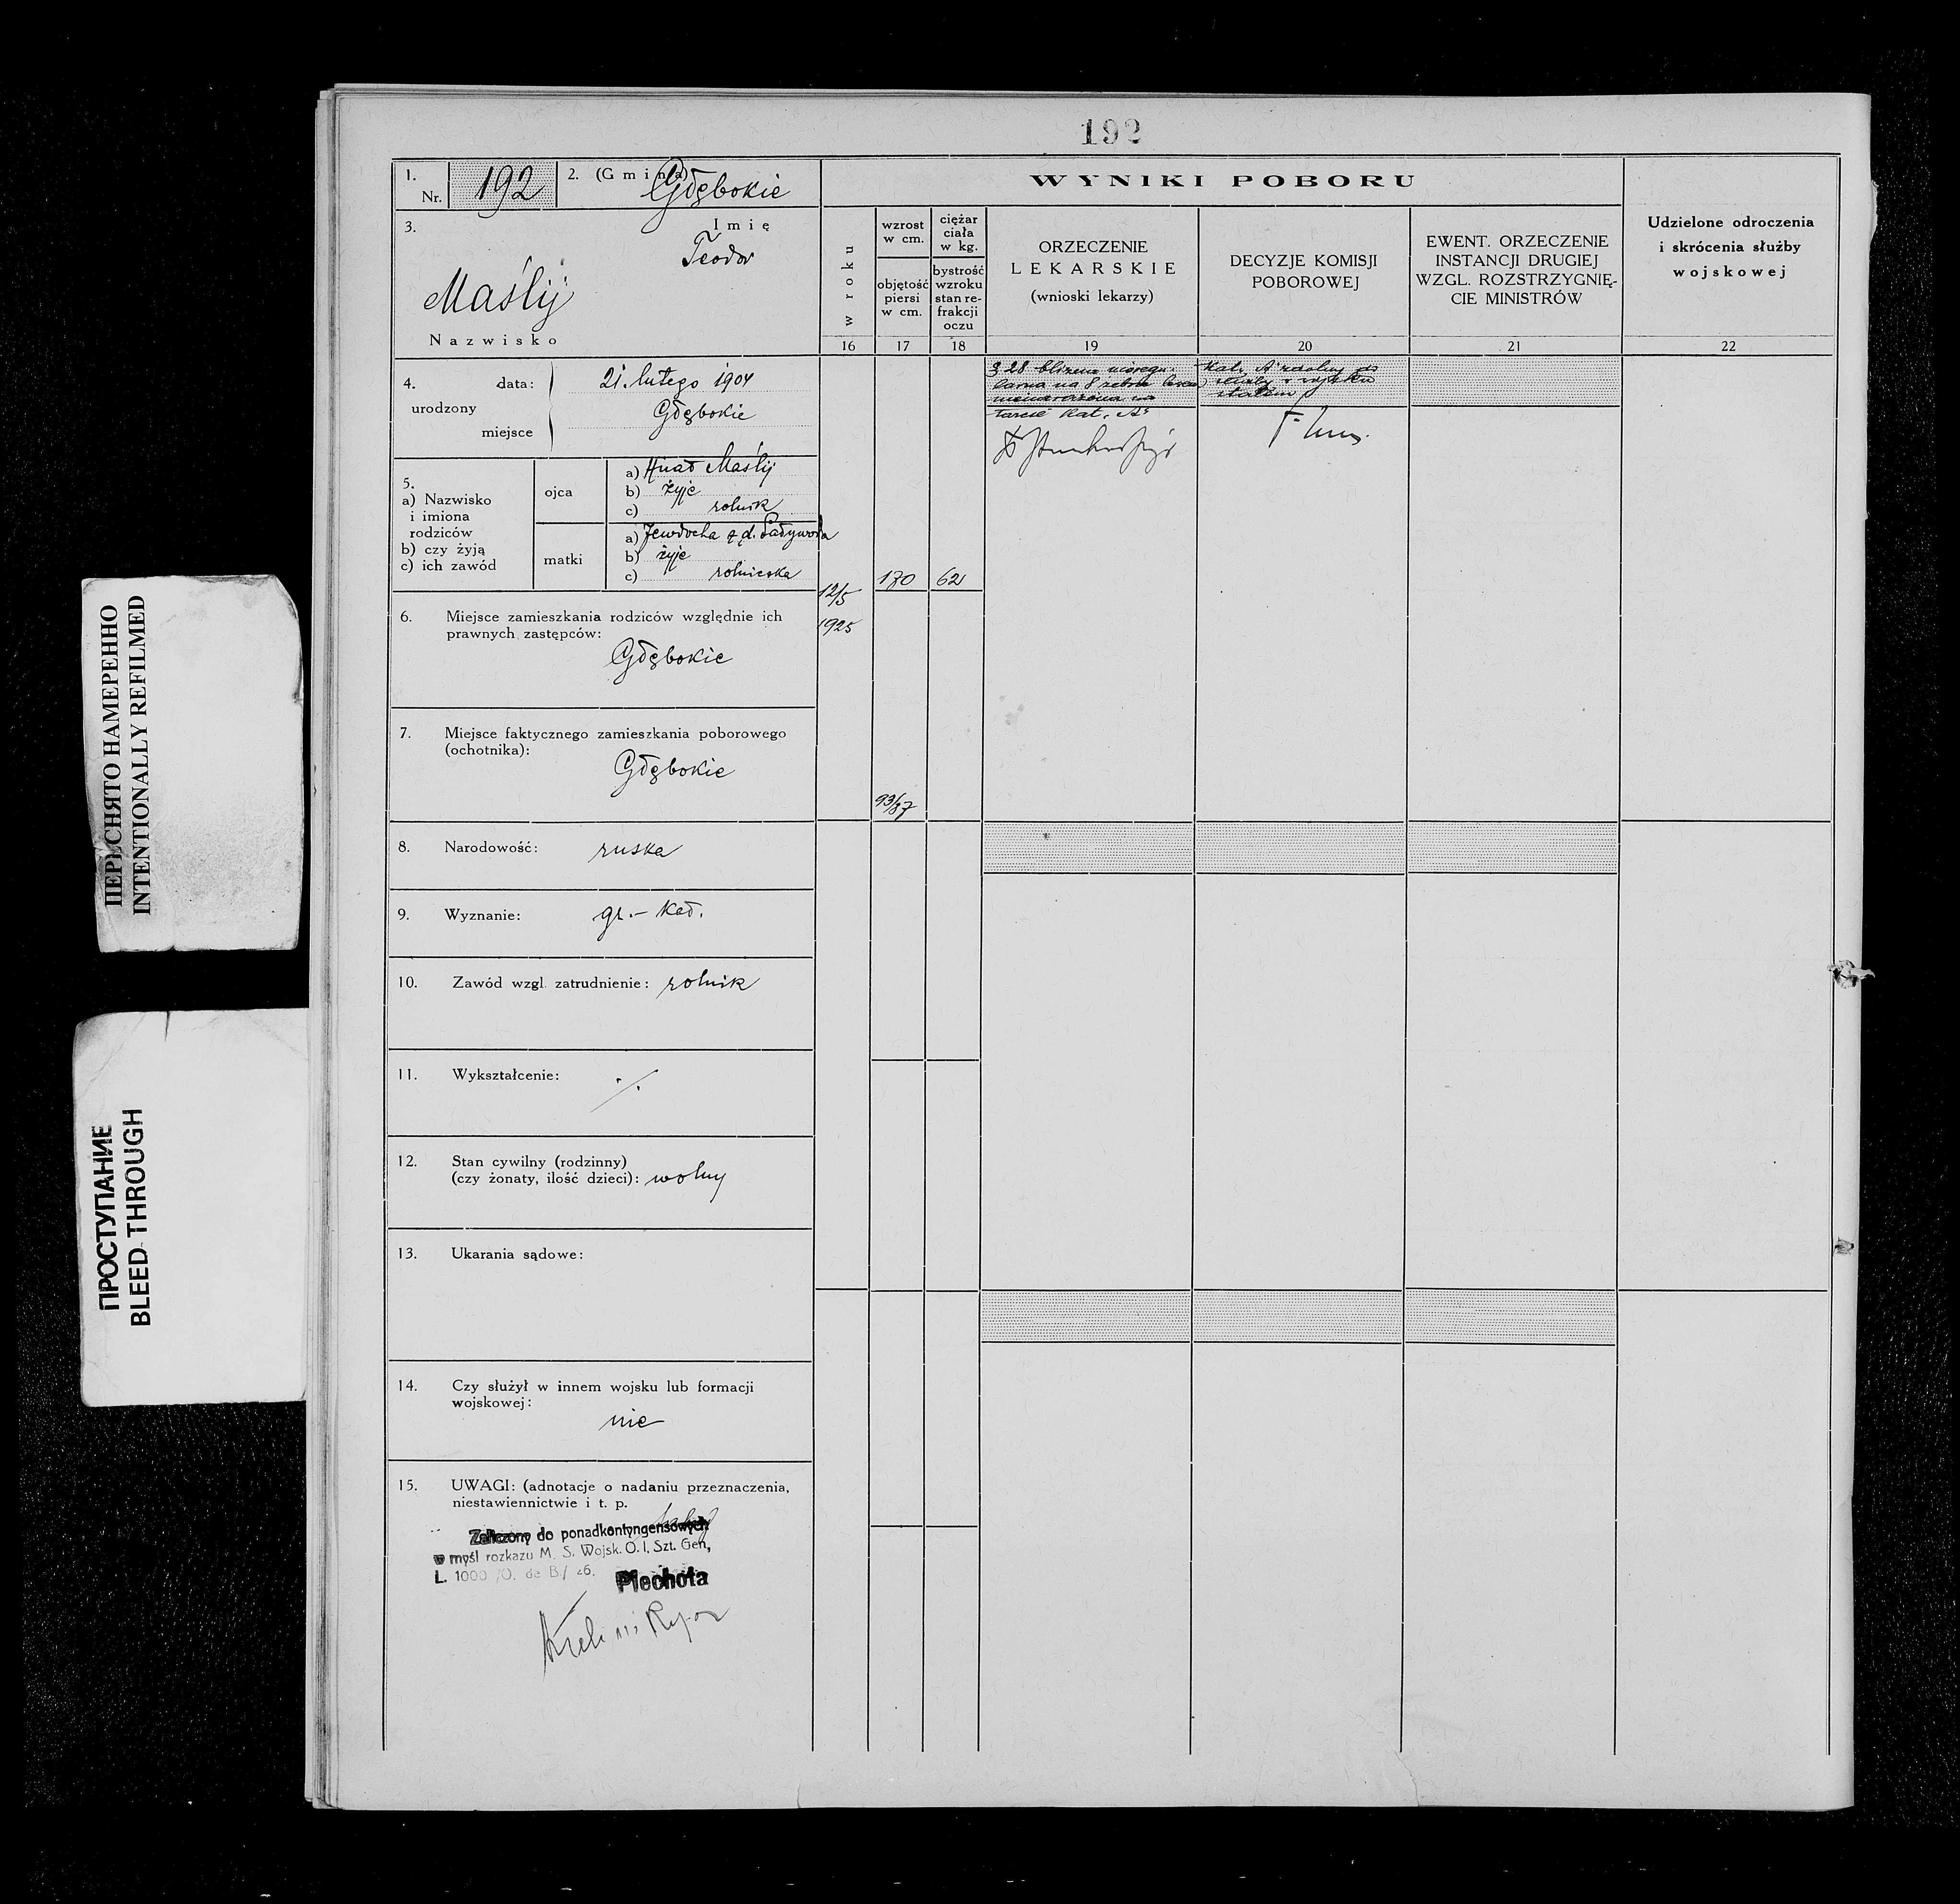 192
1.
Nr. 192
2. (Gmina) Głębokie
3.
Imię
Teodor
Maślij
Nazwisko
4. data: 21. lutego 1904
urodzony
Głębokie
miejsce
5.
a) Nazwisko
i imiona
rodziców
b) czy żyją
c) ich zawód
ojca
a) Hnat Maślij
b) żyje
c) rolnik
matki
a) Jewdocha z d.
b) żyje
c) rolniczka
6. Miejsce zamieszkania rodziców względnie ich
prawnych zastępców:
Głębokie
7. Miejsce faktycznego zamieszkania poborowego
(ochotnika):
Głębokie
8. Narodowość: ruska
9. Wyznanie: gr.- kat.
10. Zawód wzgl. zatrudnienie: rolnik
11. Wykształcenie: ./.
12. Stan cywilny (rodzinny)
(czy żonaty, ilość dzieci): wolny
13. Ukarania sądowe:
14. Czy służył w innem wojsku lub formacji
wojskowej:
nie
15. UWAGI: (adnotacje o nadaniu przeznaczenia,
niestawiennictwie i t. p.
Zaliczony do ponadkontyngensowych
w myśl rozkazu M. S. Wojsk. O. I. Szt. Gen,
L. 1000 /O. de B/ 26.
Piechota
WYNIKI POBORU
w roku
16
wzrost
w cm.
objętość
piersi
w cm.
17
ciężar
ciała
w kg.
bystrość
wzroku
stan re-
frakcji
oczu
18
ORZECZENIE
LEKARSKIE
(wnioski lekarzy)
19
DECYZJE KOMISJI
POBOROWEJ
20
EWENT. ORZECZENIE
INSTANCJI DRUGIEJ
WZGL. ROZSTRZYGNIĘ-
CIE MINISTRÓW
21
Udzielone odroczenia
i skrócenia służby
wojskowej
22
12/5
1925
170
62
93/87
§ 28 blizna
na 8 żebra
Kat. A
Kat. A zdolny do
służby w wojsku
stałem
ПЕРЕСНЯТО НАМЕРЕННО
INTENTIONALLY REFILMED
ПРОСТУПАНИЕ
BLEED THROUGH